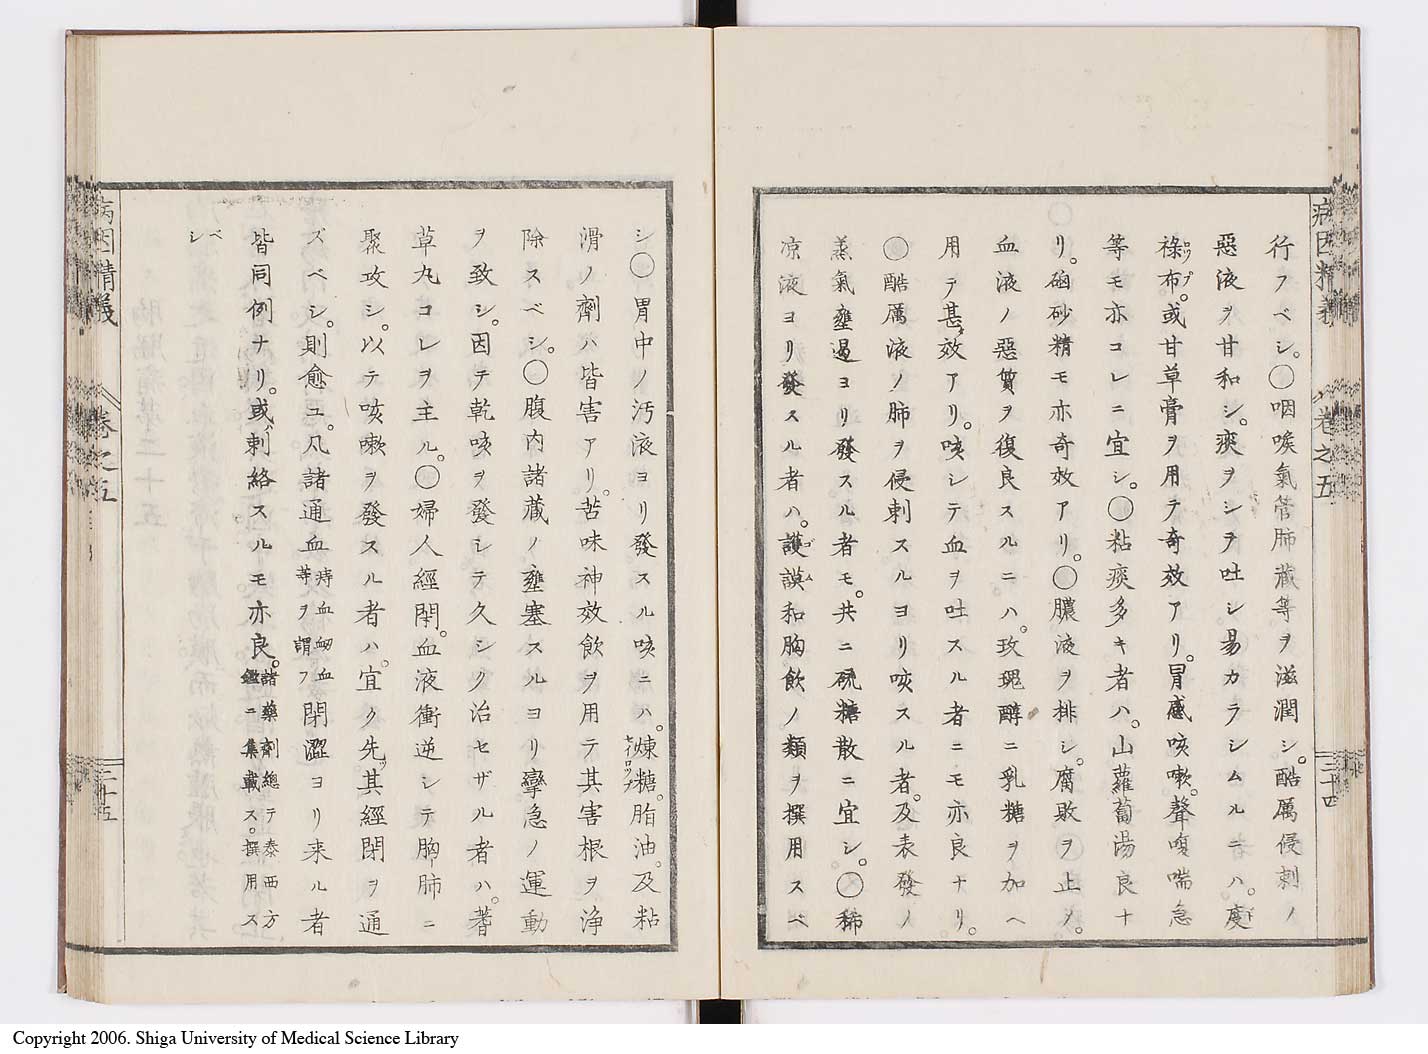 行フベシ。〇咽喉氣管肺藏等ヲ滋潤シ。酷厲侵刺ノ
惡液ヲ甘和シ。痰ヲシヲ吐シ易カラシムルニハ。度
祿布。或甘草膏ヲ用テ奇效アリ。冒感咳嗽。聲嗄喘急
ロツプ
等モ亦コレニ宜シ。〇粘痰多キ者ハ。山蘿蔔湯良ナ
リ。硇砂精モ亦奇效アリ。〇膿液ヲ排シ。腐敗ヲ止ノ。
血液ノ惡質ヲ復良スルニハ。玫瑰醇ニ乳糖ヲ加ヘ
用テ甚タ效アリ。咳シテ血ヲ吐スル者ニモ亦良ナリ。
〇酷厲液ノ肺ヲ侵刺スルヨリ咳スル者。及表發ノ
蒸氣壅遏ヨリ發スル者モ。共ニ硫糖散ニ宜シ。〇稀
凉液ヨリ發スル者ハ。護謨和胸飲ノ類ヲ撰用スベ
ゴム
病因精義
卷之五
三十四
シ〇胃中ノ汚液ヨリ發スル咳ニハ。煉糖。脂油。及粘
滑ノ劑ハ皆害アリ。苦味神效飲ヲ用テ其害根ヲ浄
除スベシ。〇腹内諸藏ノ壅塞スルヨリ攣急ノ運動
ヲ致シ。因テ乾咳ヲ發シテ久シク治セザル者ハ。蓍
草丸コレヲ主ル。〇婦人經閉。血液衝逆シテ胸肺ニ
聚攻シ。以テ咳嗽ヲ發スル者ハ。宜ク先ツ其經閉ヲ通
ズベシ。則愈ユ。凡諸通血痔血衂血等ヲ謂フ閉澀ヨリ来ル者
皆同例ナリ。或ハ刺絡スルモ亦良。諸藥劑總テ泰西方鑑ニ集載ス。撰用ス
ベシ
病因精義
卷之五
三十五
Copyright 2006. Shiga University of Medical Science Library